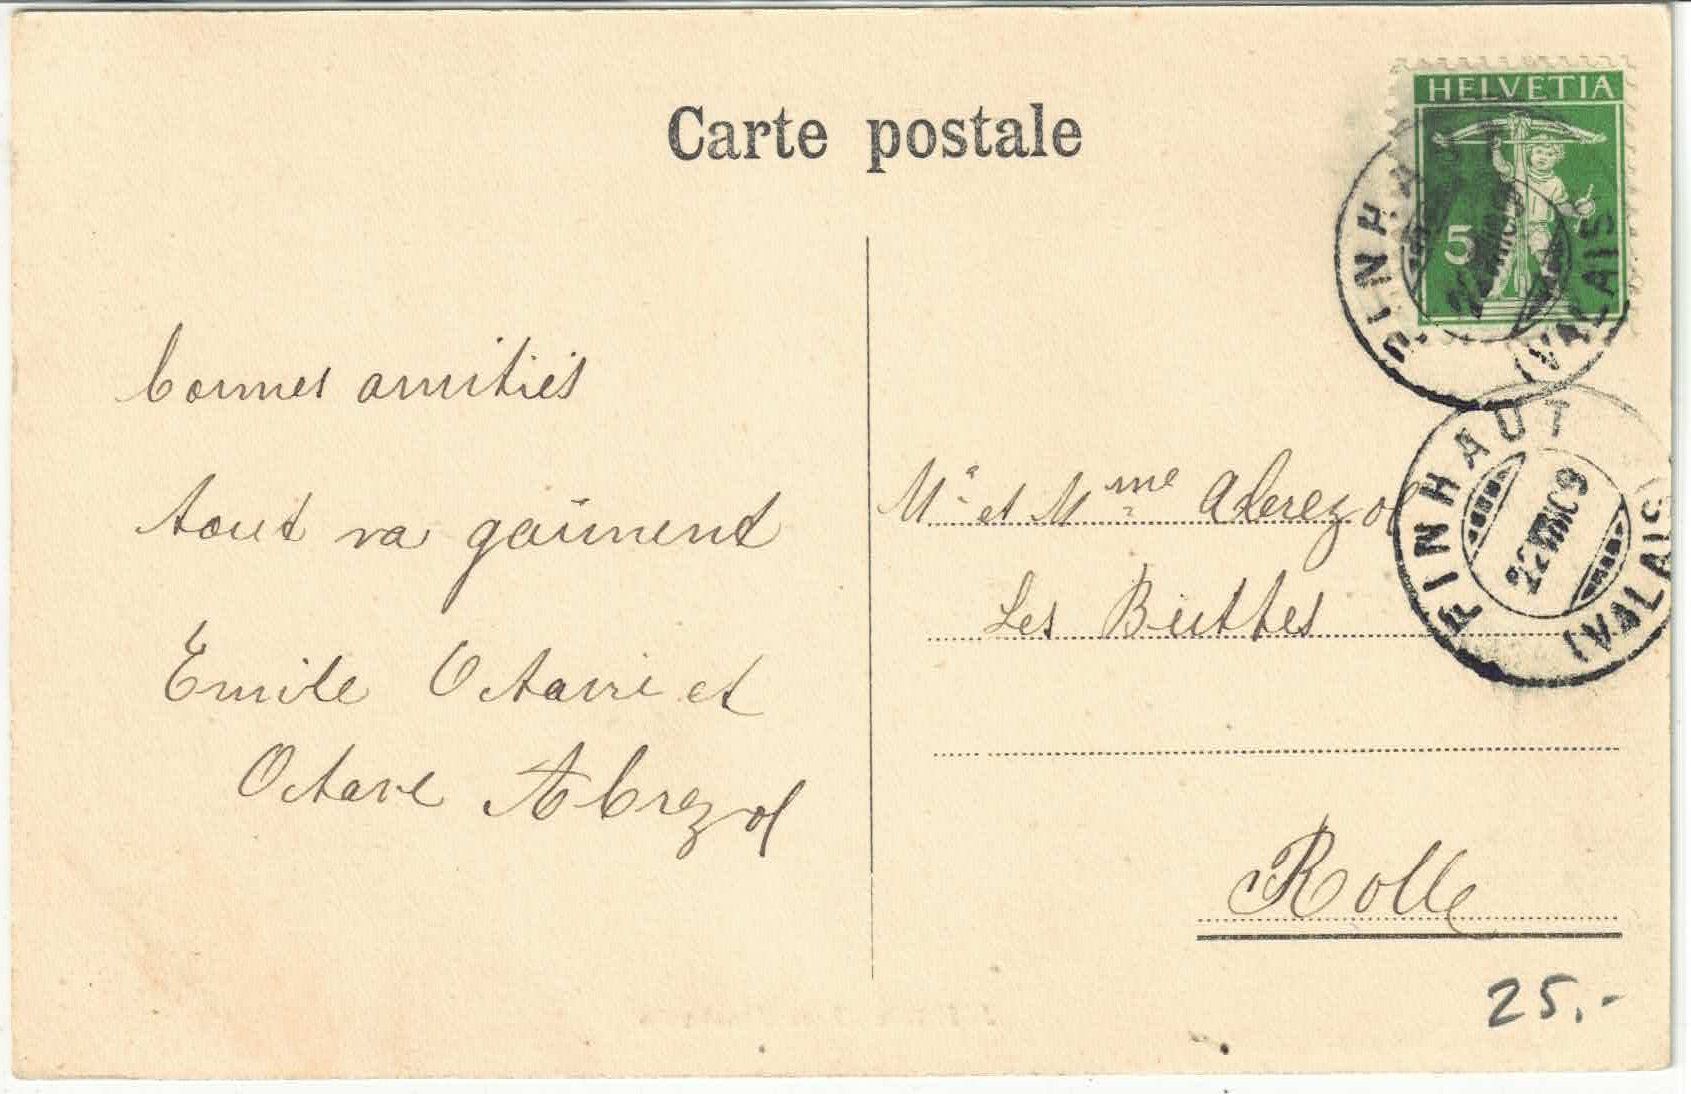 Carte postale
HELVETIA
5
FINHAUT
(VALAIS)
22 VIII 09
FINHAUT
(VALAIS)
22 VIII 09
bonnes amitiés
tout va gaiment
Emile Octavie et
Octave Abrezol
Mr et Mme Abrezol
Les Buttes
Rolle
25.-